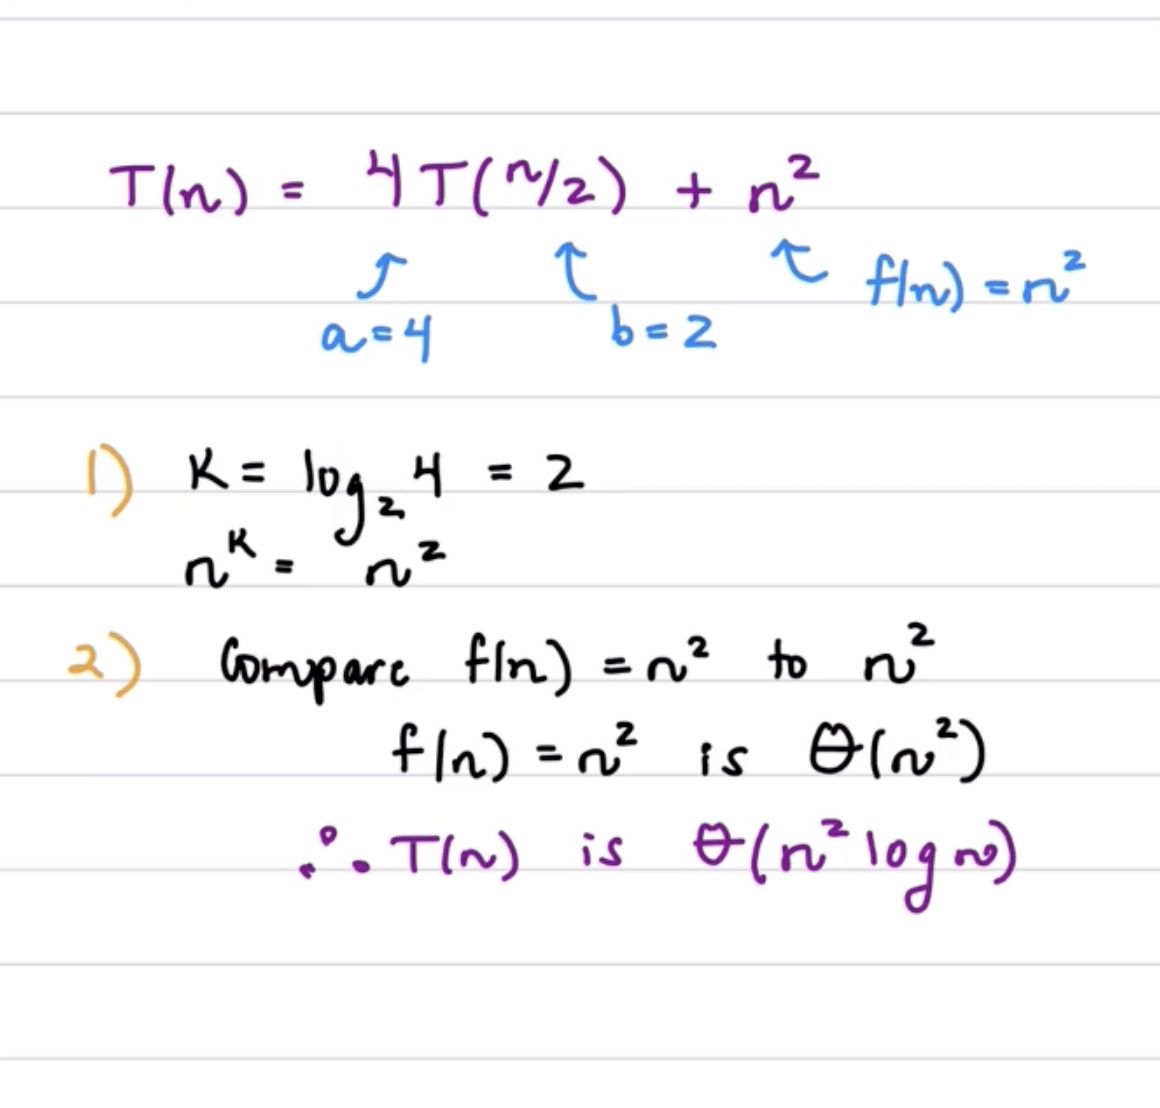 T(n) = 4T(n/2) + n²
a=4 b=2 f(n) = n²
1) K = log₂ 4 = 2
nᴷ = n²
2) Compare f(n) = n² to n²
f(n) = n² is θ(n²)
∴ T(n) is θ(n² log n)